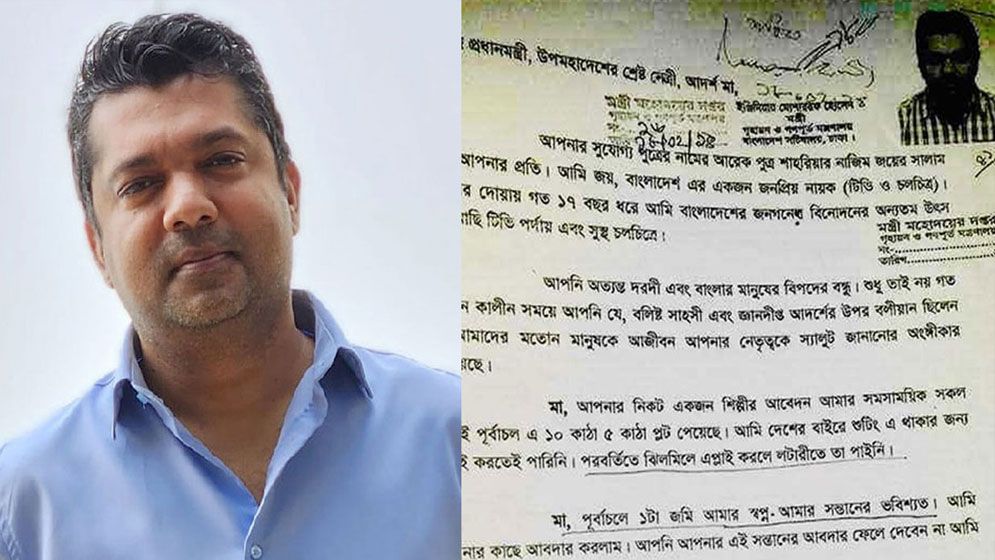 প্রধানমন্ত্রী, উপমহাদেশের শ্রেষ্ট নেত্রী, আদর্শ মা,
মন্ত্রী মহোদয়ের দপ্তর
গৃহায়ন ও গণপূর্ত মন্ত্রণালয়
ইঞ্জিনিয়ার মোশাররফ হোসেন
মন্ত্রী
গৃহায়ন ও গণপূর্ত মন্ত্রণালয়
বাংলাদেশ সচিবালয়, ঢাকা।
আপনার সুযোগ্য পুত্রের নামের আরেক পুত্র শাহরিয়ার নাজিম জয়ের সালাম
আপনার প্রতি। আমি জয়, বাংলাদেশ এর একজন জনপ্রিয় নায়ক (টিভি ও চলচিত্র)।
র দোয়ায় গত ১৭ বছর ধরে আমি বাংলাদেশের জনগনের বিনোদনের অন্যতম উৎস
ছি টিভি পর্দায় এবং সুস্থ চলচিত্রে।
মন্ত্রী মহোদয়ের দপ্তর
গৃহায়ন ও গণপূর্ত মন্ত্রণালয়
নং-
তারিখ
আপনি অত্যন্ত দরদী এবং বাংলার মানুষের বিপদের বন্ধু। শুধু তাই নয় গত
ন কালীন সময়ে আপনি যে, বলিষ্ট সাহসী এবং জ্ঞানদীপ্ত আদর্শের উপর বলীয়ান ছিলেন
মাদের মতোন মানুষকে আজীবন আপনার নেতৃত্বকে স্যালুট জানানোর অংঙ্গীকার
ছে।
মা, আপনার নিকট একজন শিল্পীর আবেদন আমার সমসাময়িক সকল
ই পূর্বাচল এ ১০ কাঠা ৫ কাঠা প্লট পেয়েছে। আমি দেশের বাইরে শুটিং এ থাকার জন্য
ই করতেই পারিনি। পরবর্তিতে ঝিলমিলে এপ্লাই করলে লটারীতে তা পাইনি।
মা, পূর্বাচলে ১টা জমি আমার স্বপ্ন-আমার সন্তানের ভবিশ্যত। আমি
নার কাছে আবদার করলাম। আপনি আপনার এই সন্তানের আবদার ফেলে দেবেন না আমি